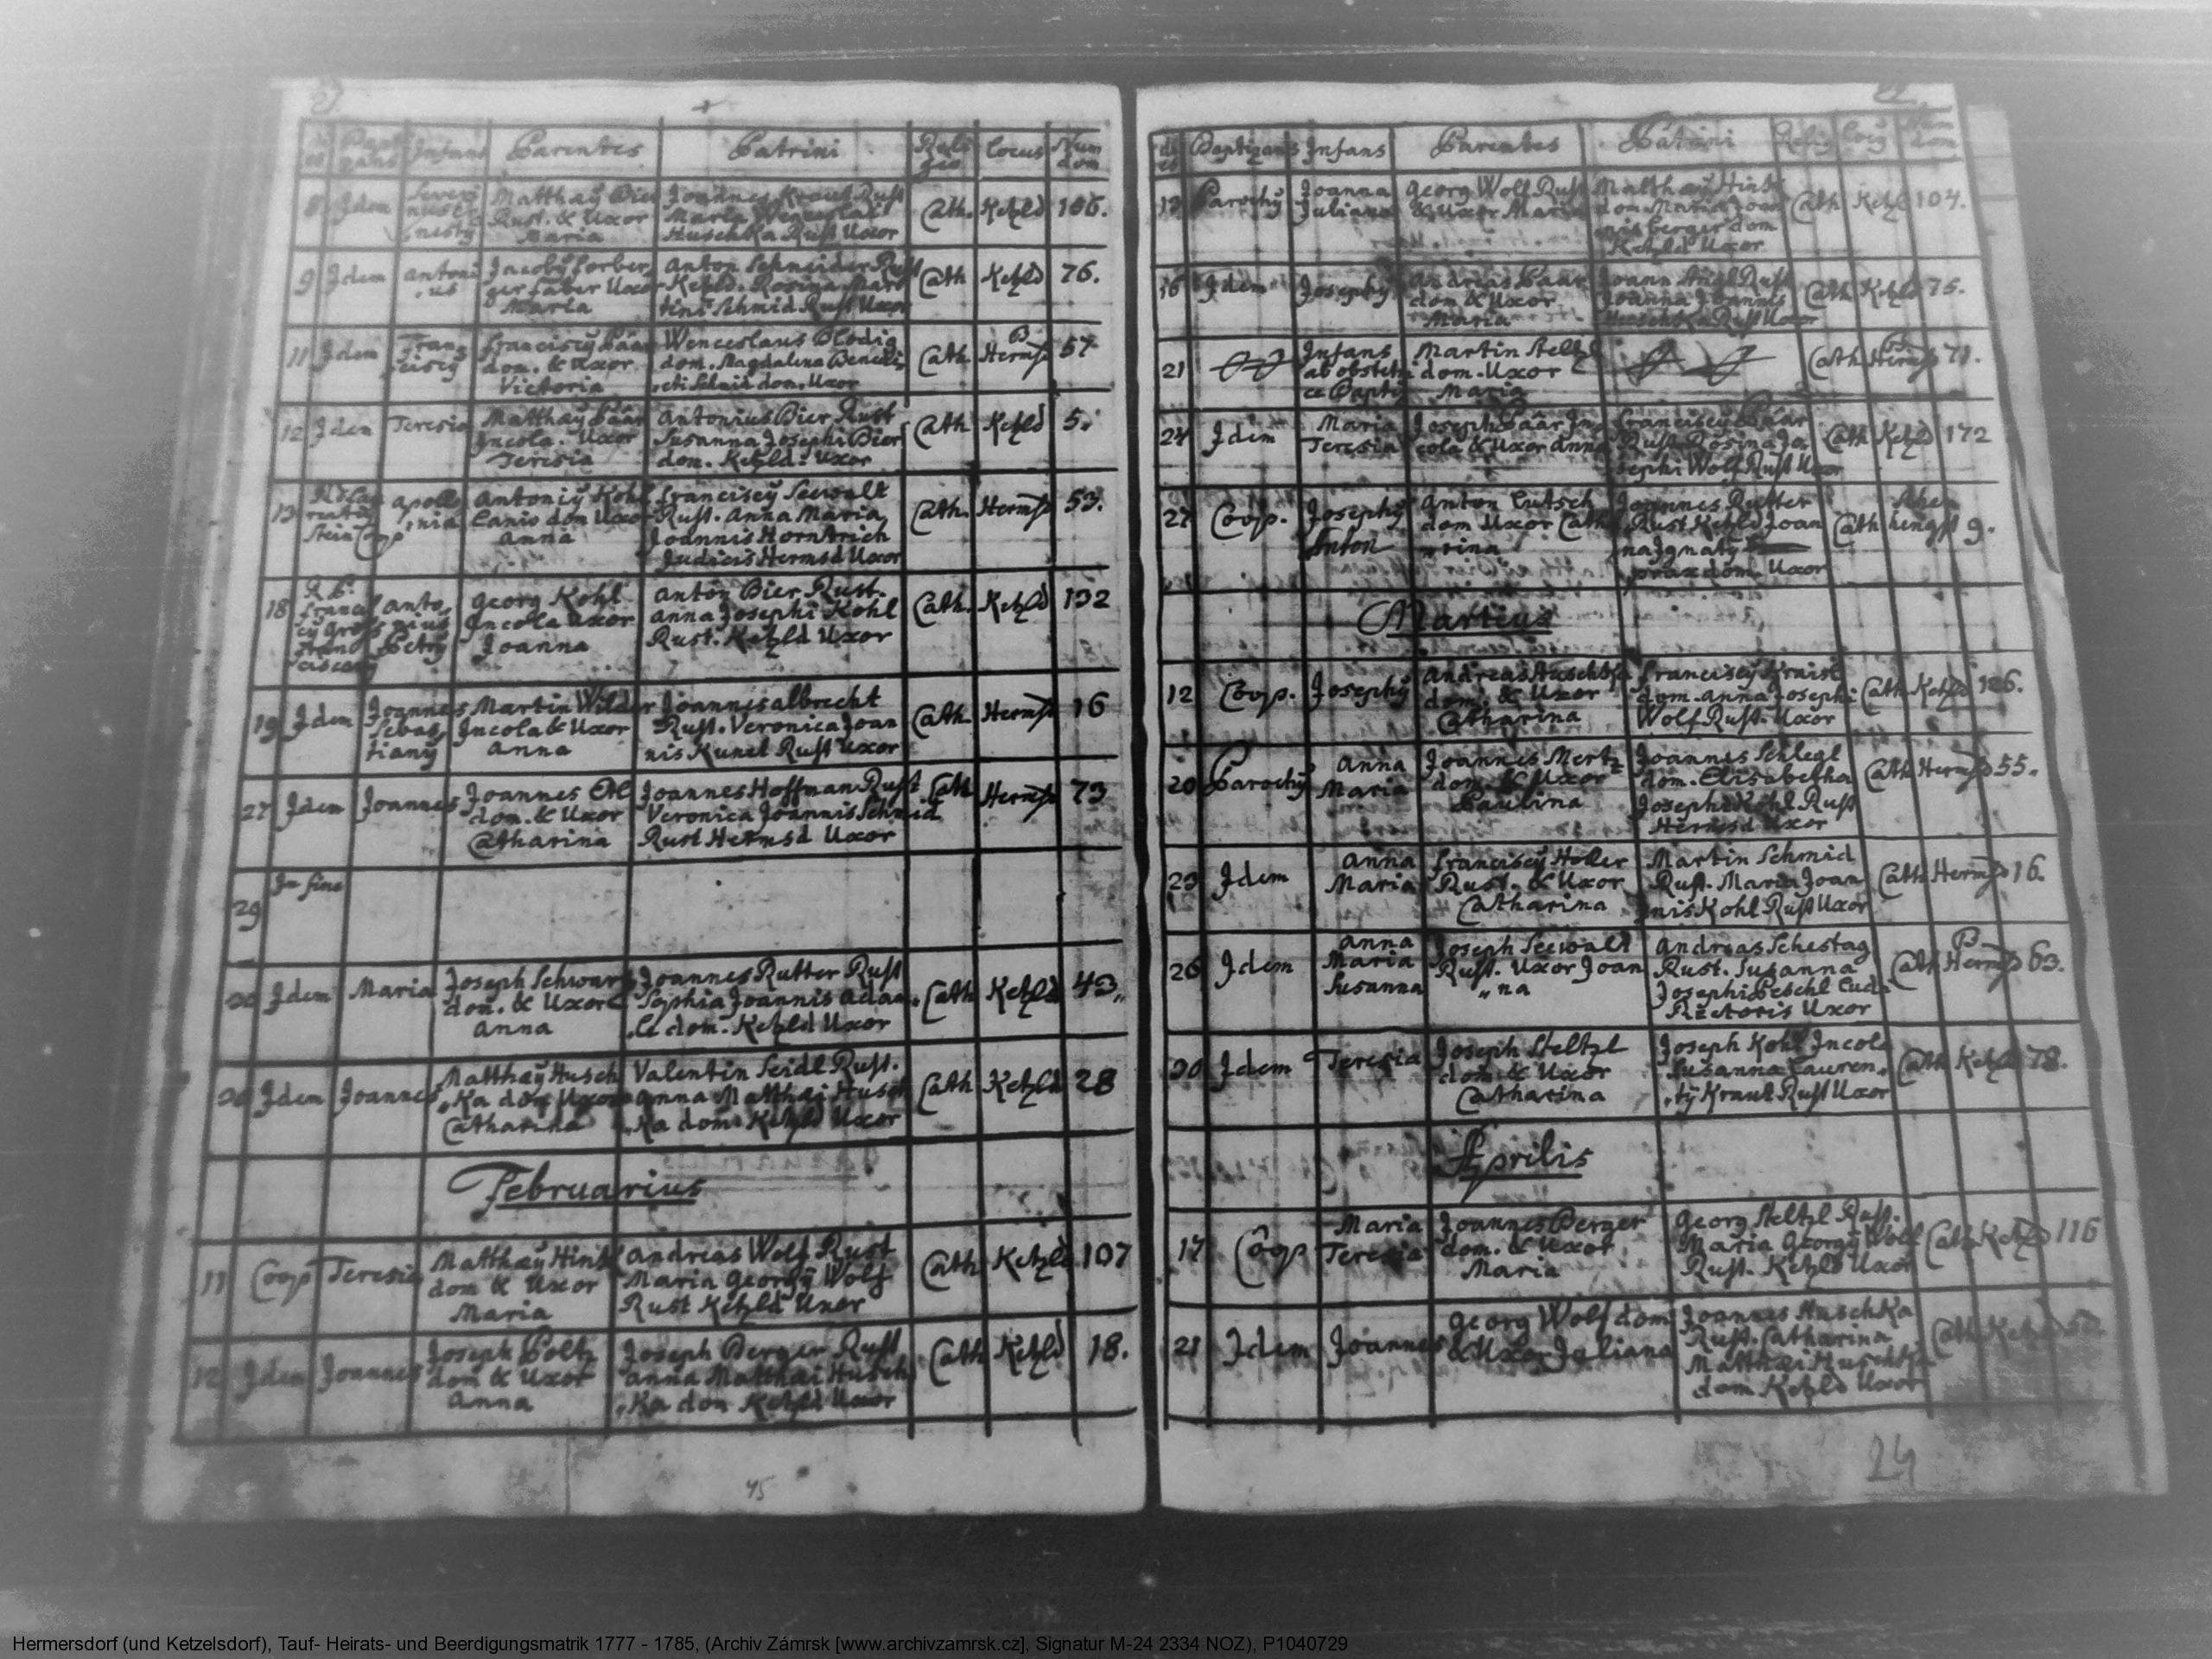 Parentes
Patrini
locus
Num
dom
8 Idem
Matthaÿ Bier Joannes Kraut Rust
Rust. & Uxor Maria Wenceslai
Maria Huschka Rust Uxor
Cath. Ketzld 166.
9 Idem Antoni
us
Jacobÿ forber Anton Schneider Rust
ger faber Uxor Ketzld. Rosina Mar
Maria tini Schmid Rust Uxor
Cath Ketzld 76.
11 Idem Fran
ciscÿ
Franciscÿ Päar Wenceslaus Blodig
dom. & Uxor dom. Magdalena Benedi
Victoria cti Schmid dom. Uxor
Cath. Hermsd 57
12 Idem Teresia
Matthaÿ Päar Antonius Bier Rust
Incola. Uxor Susanna Josephi Bier
Teresia dom. Ketzld: Uxor
Cath Ketzld 5.
13
Stein Coop
Apollo
nia
Antoniÿ Kohl Franciscÿ Seewalt
Lanio dom Uxor Rust. Anna Maria
Anna Joannis Hornkrich
Judicis Hermsd Uxor
Cath. Hermsd 53.
18 R. P.
Francis
cÿ Gros
Fran
ciscan
Anto
nius
Petrÿ
Georg Kohl Anton Bier Rust.
Incola Uxor Anna Josephi Kohl
Joanna Rust. Ketzld Uxor
Cath. Ketzld 132
19 Idem Joannes
Sebas
tianÿ
Martin Wilder Joannes Albrecht
Incola & Uxor Rust. Veronica Joan
Anna nis Kunel Rust Uxor
Cath. Hermsd 16
27 Idem Joannes
Joannes Etl Joannes Hoffman Rust
dom. & Uxor Veronica Joannis Schmid
Catharina Rust Hermsd Uxor
Cath Hermsd 73
29 In fine
30 Idem Maria
Joseph Schwarz Joannes Rutter Rust
dom. & Uxor Sophia Joannis Adam
Anna le dom. Ketzld Uxor
Cath Ketzld 43
30 Idem Joannes
Matthaÿ Husch Valentin Seidl Rust.
Ka dom Uxor Anna Matthai Husch
Catharina Ka dom. Ketzld Uxor
Cath Ketzld 28
Februarius
11 Coop Teresia
Matthaÿ Hink Andreas Wolf Rust
dom & Uxor Maria Georgÿ Wolf
Maria Rust Ketzld Uxor
Cath Ketzld 107
12 Idem Joannes
Joseph Poltz Joseph Berger Rust
dom & Uxor Anna Matthai Husch
Anna Ka dom Ketzld Uxor
Cath Ketzld 18.
45
Baptizans Infans Parentes Patrini
Parochÿ Joanna
Juliana
Georg Wolf Rust Matthaÿ Hink
& Uxor Maria dom. Maria Joan
nis berger dom
Ketzld Uxor
Cath Ketzl 104.
16 Idem Josephÿ
Andreas Päar Joann Rust
dom & Uxor Joanna Joannis
Maria Huschka Rust Uxor
Cath Ketzld 75.
21 Infans
ab obstetri
ce Baptiz
Martin Steltzl
dom. Uxor
Maria
Cath Hermsd 71.
24 Idem Maria
Teresia
Joseph Päar In Franciscÿ Päar
cola & Uxor Anna Rust. Rosina Jo
sephi Wolf Rust Uxor
Cath Ketzld 172
27 Coop. Josephÿ
Anton
Anton Lutsch Joannes Rutter
dom Uxor Catha Rust Ketzld Joan
rina na Ignatÿ
prax dom. Uxor
Cath 9.
Martius
12 Coop. Josephÿ
Andreas Huschka Franciscÿ Kraisl
dom. & Uxor dom. Anna Josephi
Catharina Wolf Rust. Uxor
Cath Ketzld 126.
20 Parochÿ Anna
Maria
Joannes Mertz Joannes Schlegl
dom. & Uxor dom. Elisabetha
Paulina Josephi Kohl Rust
Hermsd Uxor
Cath Hermsd 55.
23 Idem Anna
Maria
Franciscÿ Holler Martin Schmid
Rust. & Uxor Rust. Maria Joan
Catharina nis Kohl Rust Uxor
Cath Hermsd 16.
26 Idem Anna
Maria
Susanna
Joseph Seewalt Andreas Schestag
Rust. Uxor Joan Rust. Susanna
na Josephi Peschl Ludi
Rectoris Uxor
Cath Hermsd 63.
30 Idem Teresia
Joseph Steltzl Joseph Kohl Incola
dom & Uxor Susanna Lauren
Catharina tÿ Kraut Rust Uxor
Cath Ketzld 78.
Aprilis
17 Coop Maria
Teresia
Joannes Berger Georg Steltzl Rust.
dom. & Uxor Maria Georgÿ Wolf
Maria Rust. Ketzld Uxor
Cath Ketzld 116
21 Idem Joannes
Georg Wolf dom Joannes Huschka
& Uxor Juliana Rust. Catharina
Matthai Huschka
dom Ketzld Uxor
Cath Ketzld
24
Hermersdorf (und Ketzelsdorf), Tauf- Heirats- und Beerdigungsmatrik 1777 - 1785, (Archiv Zámrsk [www.archivzamrsk.cz], Signatur M-24 2334 NOZ), P1040729